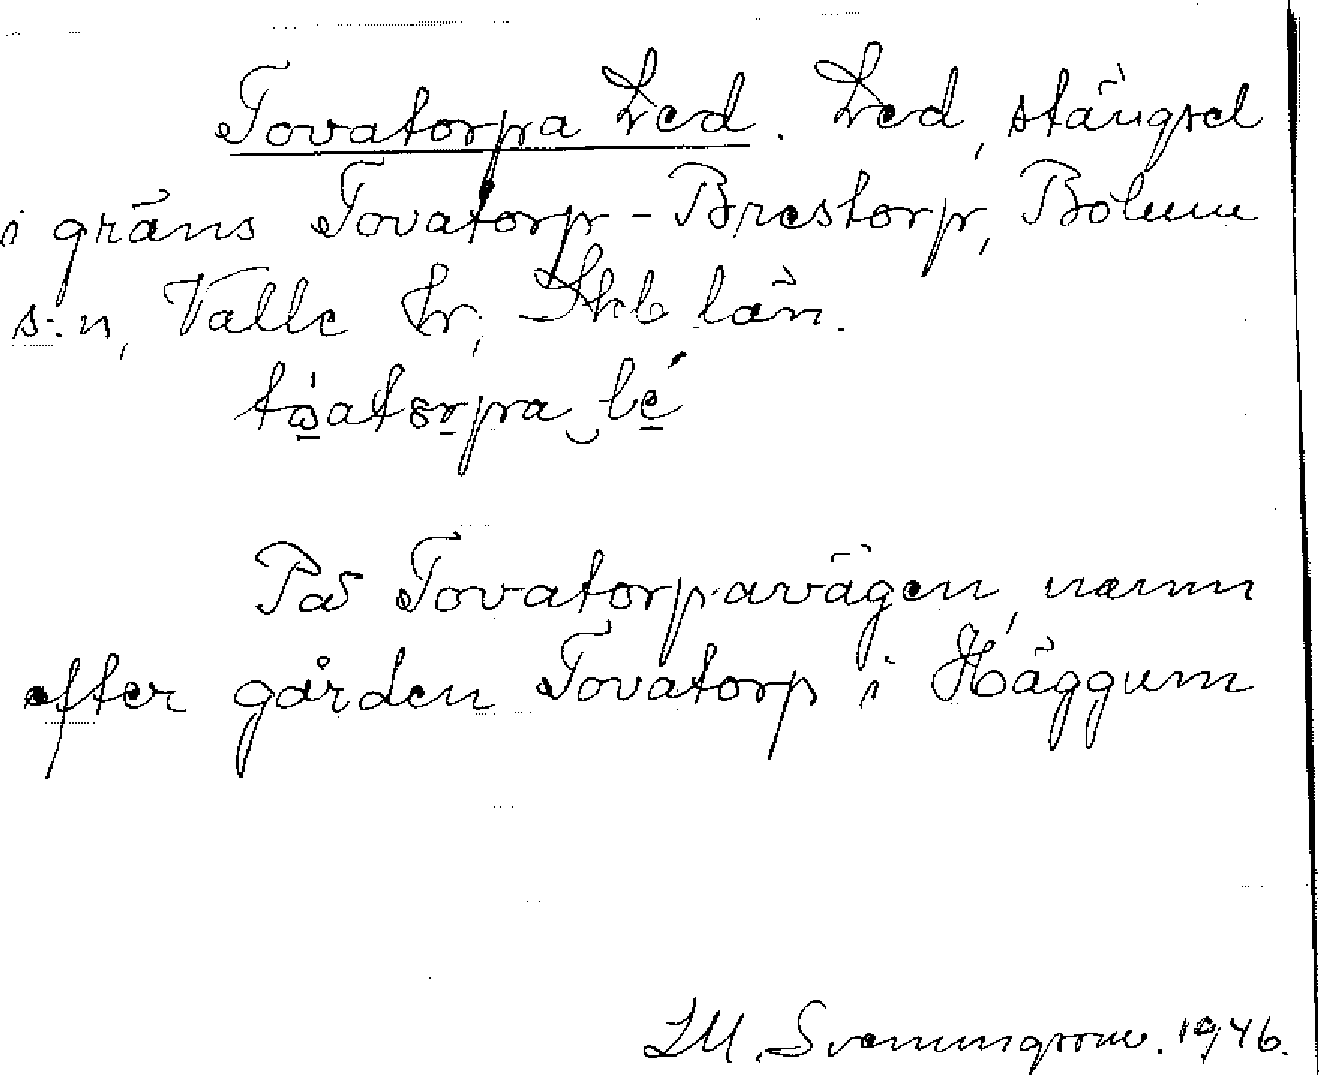 Tovatorpa Led. Led, stängsel
i gräns Tovatorp - Brestorp, Bolum
s:n, Valle hr, Skb län.
På Tovatorpavägen, namn
efter gården Tovatorp i Häggum
LM. Svenungsson. 1946.